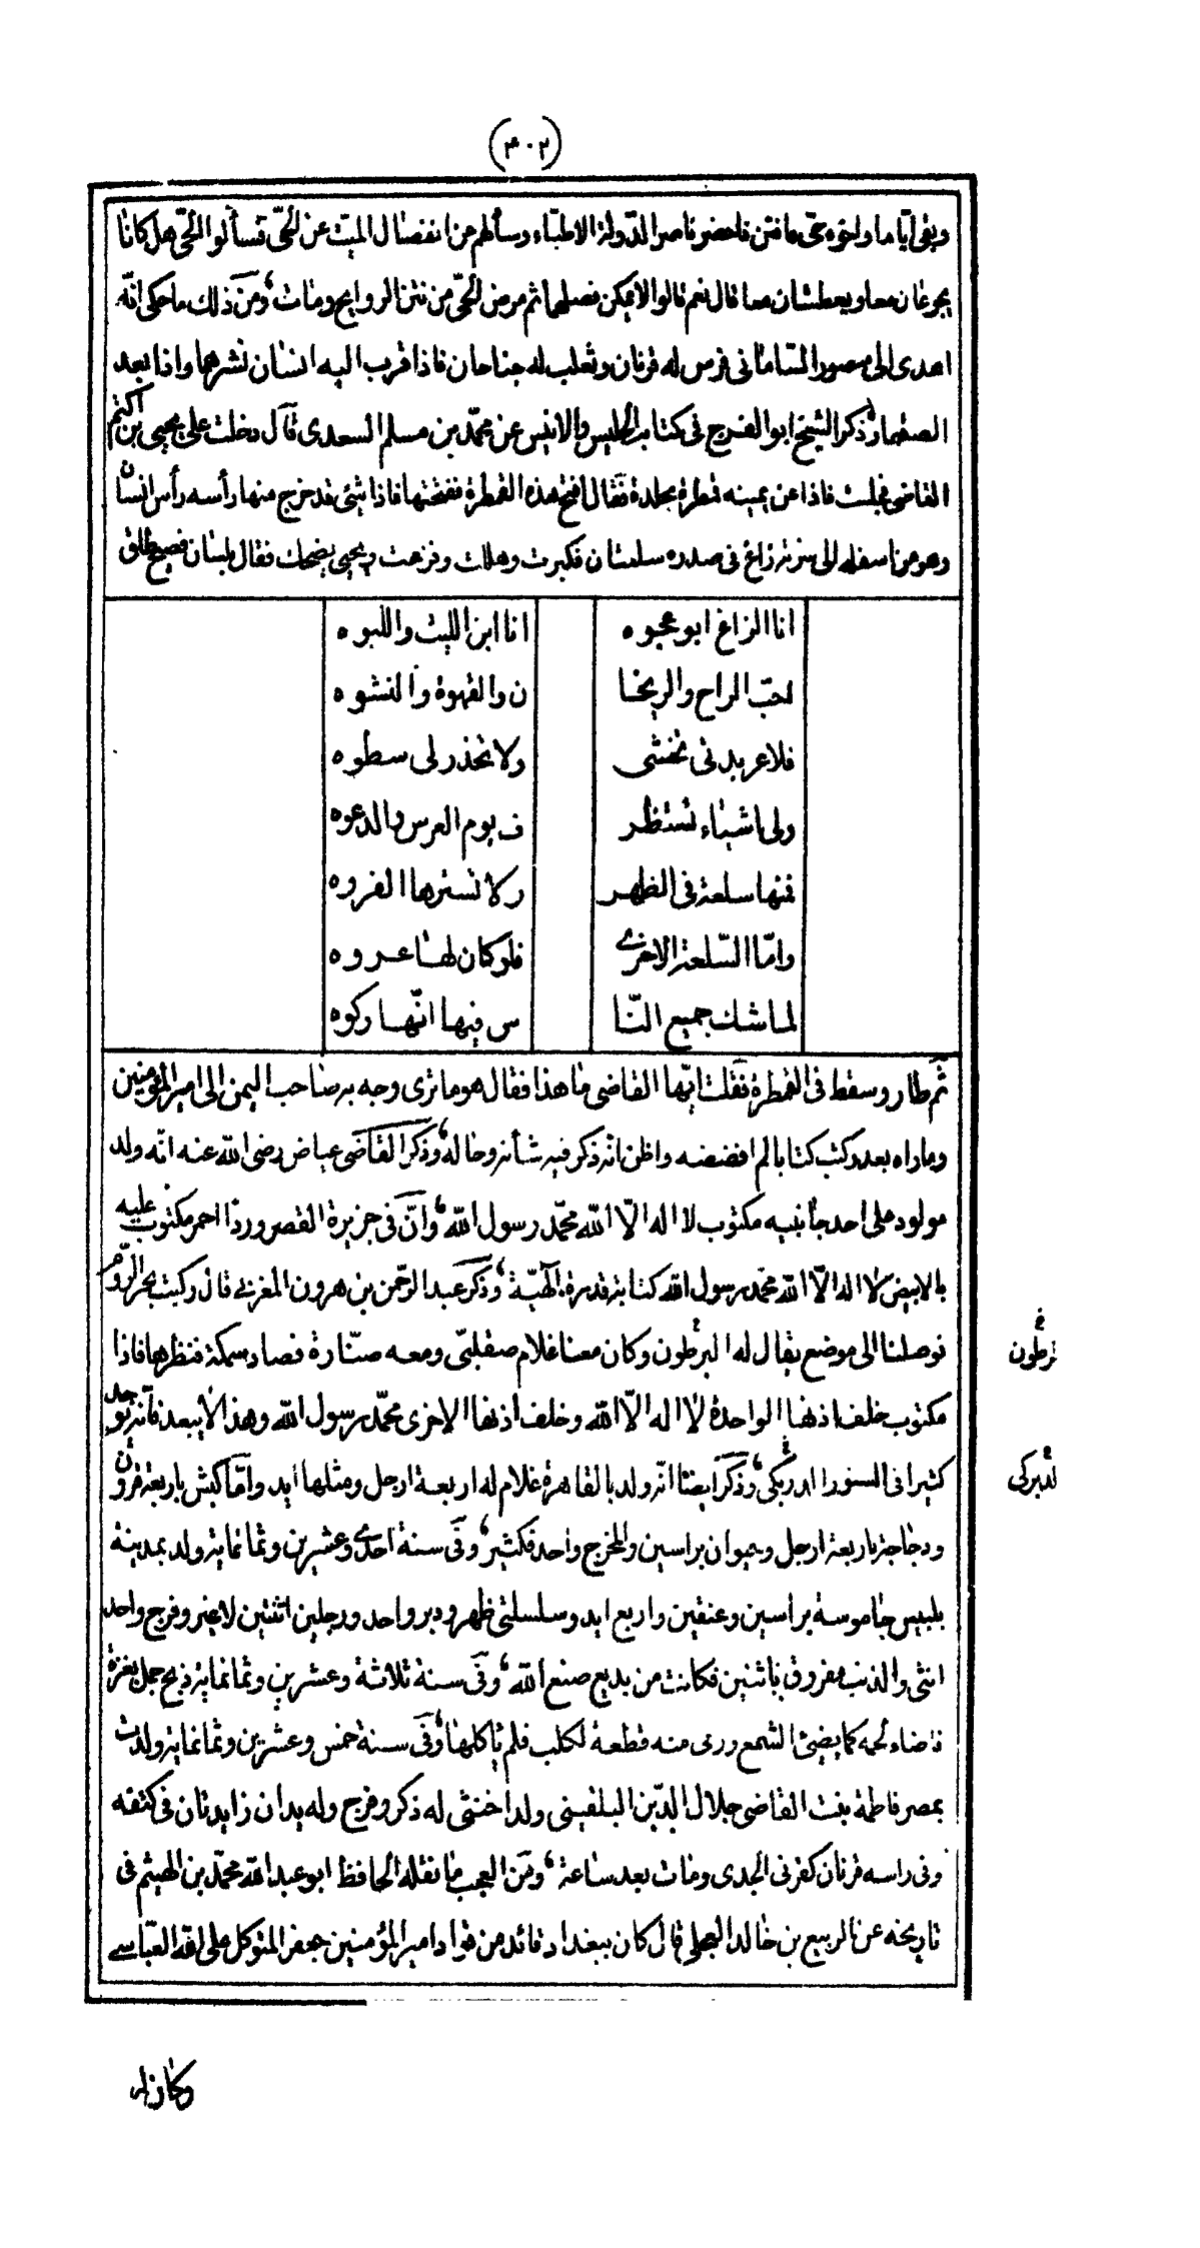 (٣٠٢)
وبقى اياما واخوه حى ما فتن فاحضر ناصر الدولة الاطباء وسألهم عن انفصال الميت عن الحى فسألوا الحى هل كانا
يجوعان معا ويعطشان معا قال نعم قالوا لا يمكن فصلهما ثم مرض الحى من نتن الروايح ومات ومن ذلك ما حكى انه
اهدى الى منصور السامانى فرس له قرنان وثعلب له جناحان فاذا قرب اليه انسان نشرهما واذا بعد
الصقهما وذكر الشيخ ابو الفرج فى كتاب الجليس والانيس عن محمد بن مسلم السعدى قال دخلت على يحيى بن اكثم
القاضى فجلست فاذا عن يمينه قمطرة مجلدة فقال افتح هذه القمطرة ففتحتها فاذا شئ قد خرج منها رأسه رأس انسان
وهو من اسفله الى سرته زاغ فى صدره سلعتان فكبرت وهللت وفزعت ويحيى يضحك فقال بلسان فصيح طلق
انا الزاغ ابو عجوه انا ابن الليث واللبوه
احب الراح والريحا ن والقهوة والنشوه
فلا عربدتى تخشى ولا تحذر لى سطوه
ولى اشياء تستظر ف يوم العرس والدعوه
فمنها سلعة فى الظهر لا تسترها الفروه
واما السلعة الاخرى فلو كان لها عروه
لما شك جميع النا س فيها انها ركوه
ثم طار وسقط فى القمطرة فقلت ايها القاضى ما هذا فقال هو ما ترى وجه به صاحب اليمن الى امير المؤمنين
وما راه بعد وكتب كتابا لم افضضه واظن انه ذكر فيه شأنه وحاله وذكر القاضى عياض رضى الله عنه انه ولد
مولود على احد جانبيه مكتوب لا اله الا الله محمد رسول الله وان فى جزيرة القصر وردا احمر مكتوب عليه
بالابيض لا اله الا الله محمد رسول الله كتابة قدرة الهية وذكر عبد الرحمن بن هرون المغربى قال ركبت بحر الروم
فوصلنا الى موضع يقال له البرطون وكان معنا غلام صقلبى ومعه صنارة فصاد سمكة فنظرها فاذا
مكتوب خلف اذنها الواحدة لا اله الا الله وخلف اذنها الاخرى محمد رسول الله وهذا لا يبعد فانه يوجد
كثيرا فى السنور وذكر ايضا انه ولد بالقاهرة غلام له اربعة ارجل ومثلها ايد واما كبش باربعة قرون
ودجاجة باربعة ارجل وحيوان براسين والمخرج واحد فكثير وفى سنة احدى وعشرين وثمانماية ولد بمدينة
بلبيس جاموسة براسين وعنقين واربع ايد وسلسلتى ظهر ودبر واحد ورجلين اثنتين لا غير وفرج واحد
انثى والذنب مفروق باثنين فكانت من بديع صنع الله وفى سنة ثلاثة وعشرين وثمانماية ذبح جمل بغزة
فاضاء لحمه كما يضئ الشمع ورمى منه قطعة لكلب فلم ياكلها وفى سنة خمس وعشرين وثمانماية ولدت
بمصر فاطمة بنت القاضى جلال الدين البلقينى ولدا خنثى له ذكر وفرج وله يدان زايدتان فى كتفه
وفى راسه قرنان كقرنى الجدى ومات بعد ساعة ومن العجب ما نقله الحافظ ابو عبد الله محمد بن الهيثم فى
تاريخه عن الربيع بن خالد البجلى قال كان ببغداد قائد من قواد امير المؤمنين جعفر المتوكل على الله العباسى
وكان له